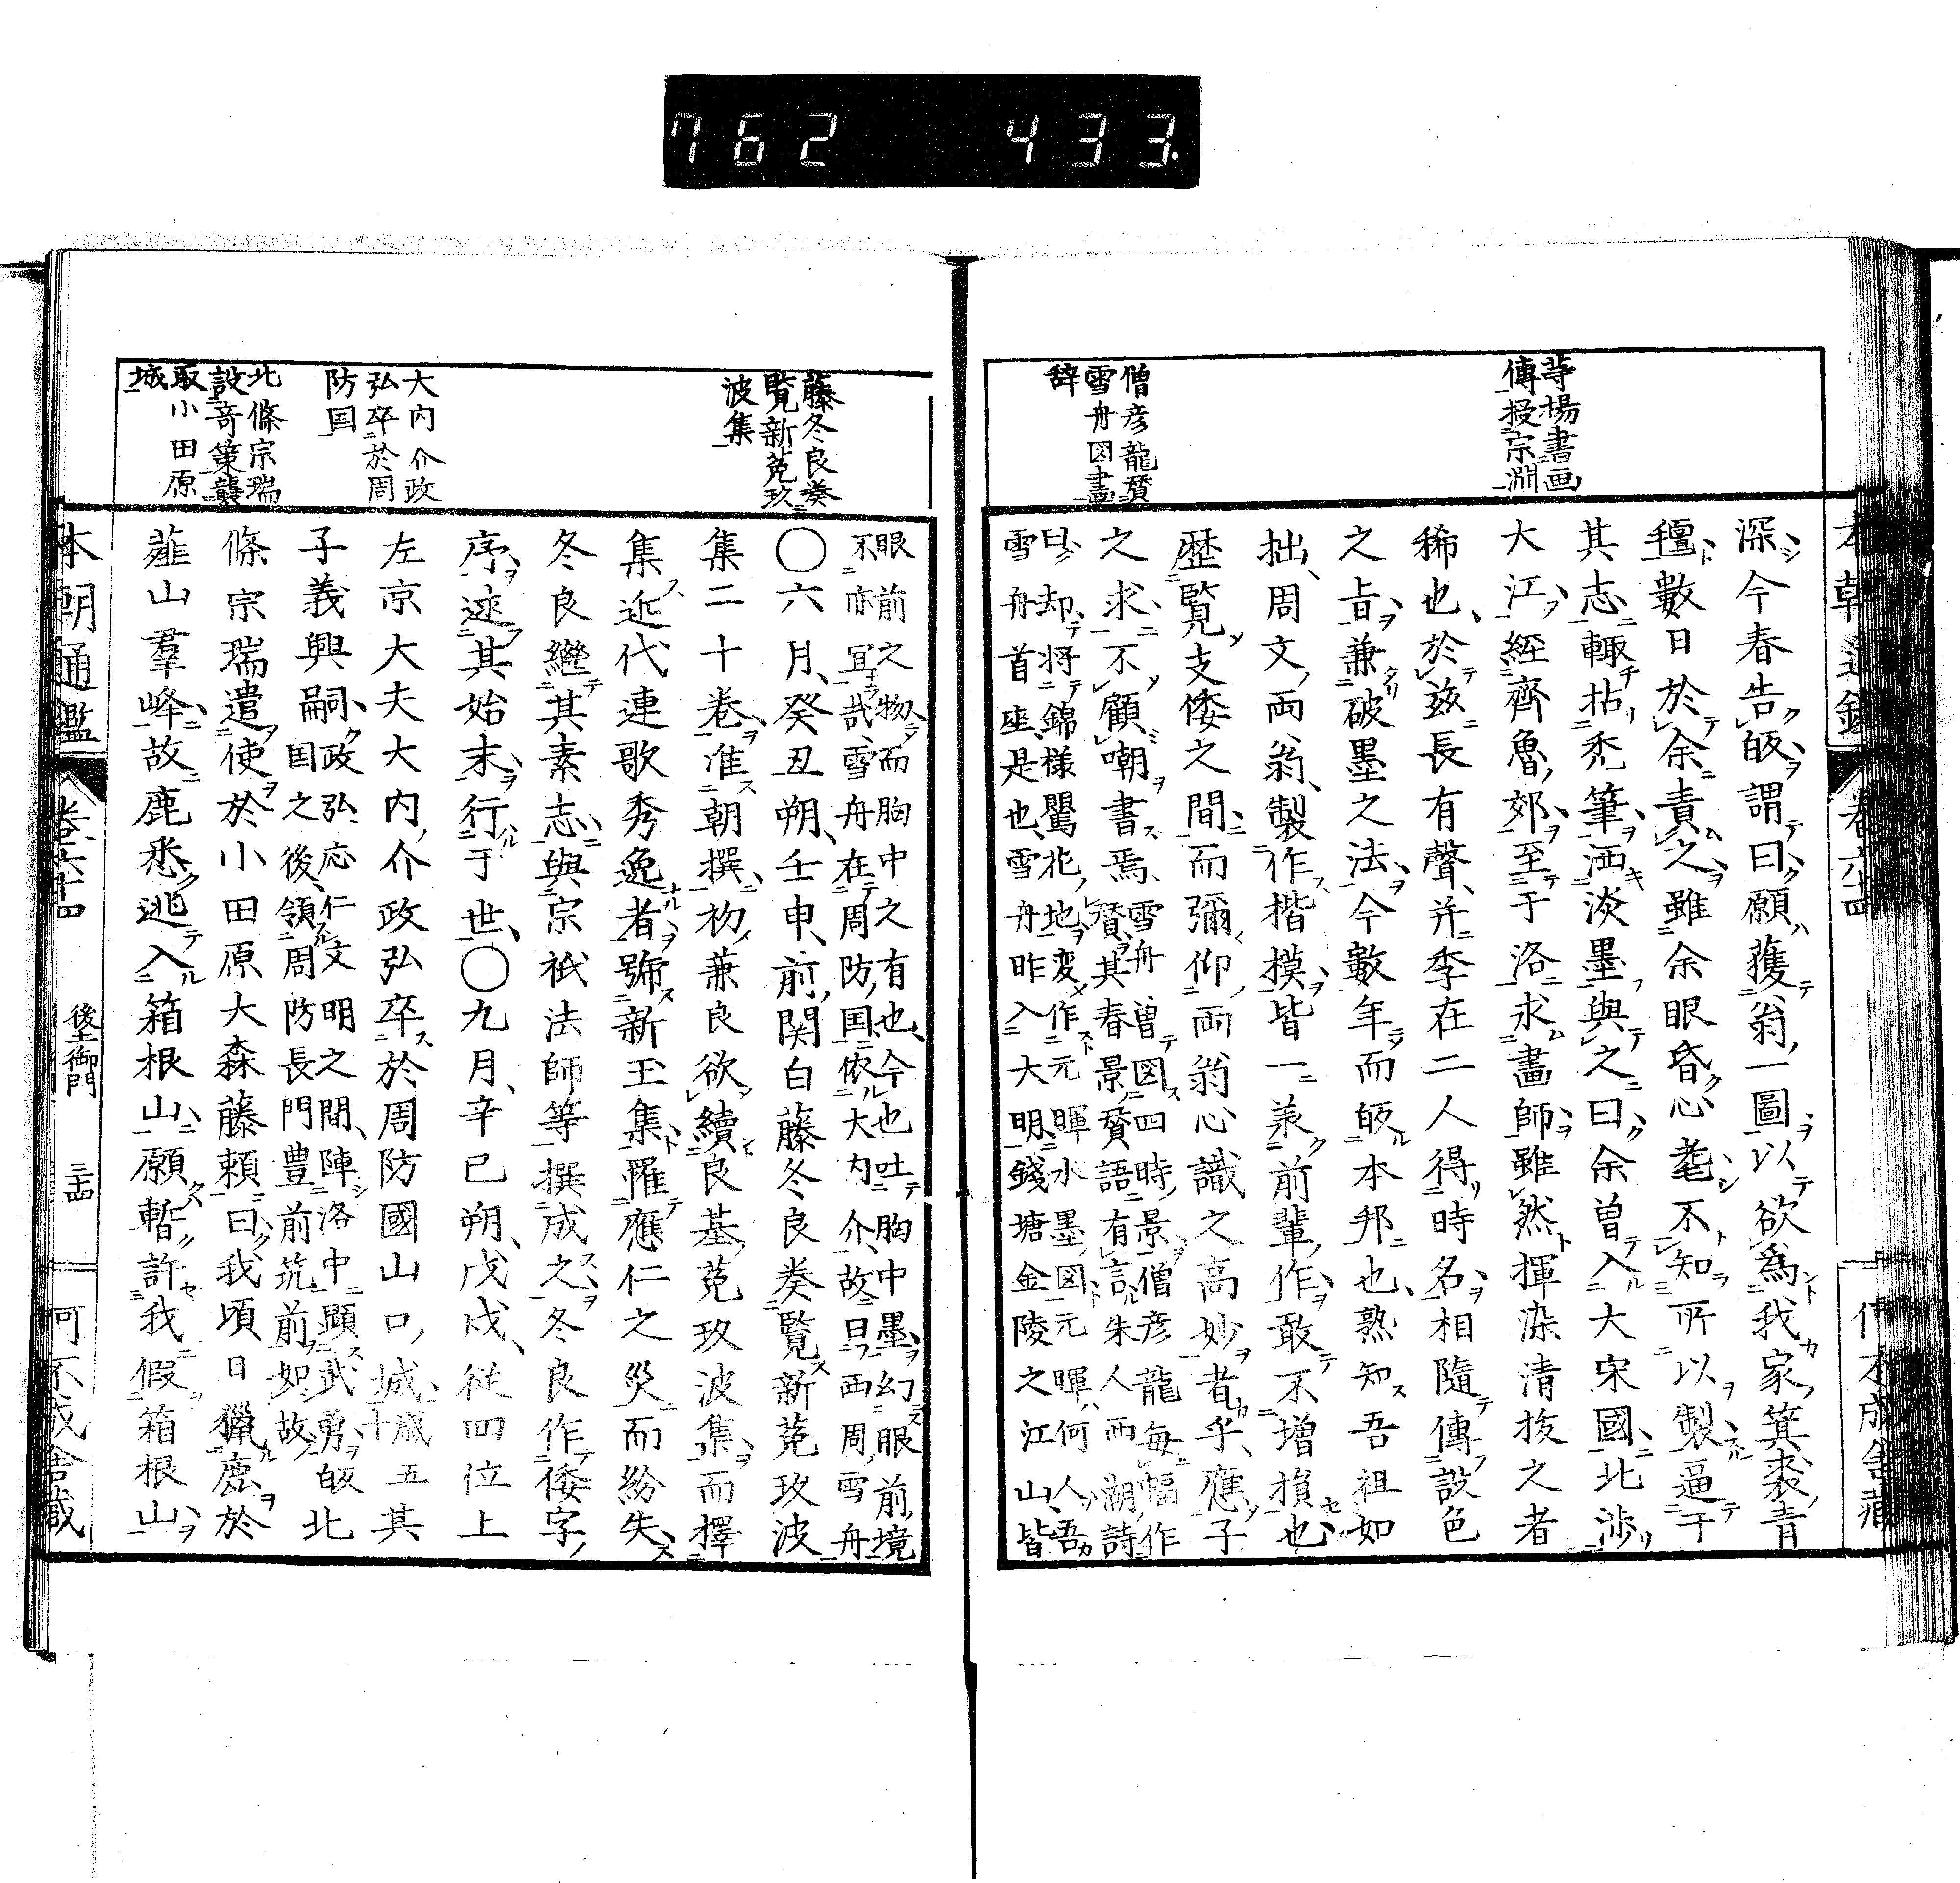 762 433.
等楊書画
傳授宗淵
僧彦龍賛
雪舟図畵
辞
深今春告皈謂曰願獲翁一圖以欲為我家箕裘青
氊數日於余責之雖余眼昏心耄不知所以製逼于
其志輙拈禿筆洒淡墨與之曰余曽入大宋國北渉
大江經齊魯郊至于洛求畫師雖然揮染清抜之者
稀也於茲長有聲并李在二人得時名相隨傳設色
之旨兼破墨之法今數年而皈本邦也熟知吾祖如
拙周文両翁製作楷摸皆一羕前輩作敢不増損也
歴覧支倭之間而彌仰両翁心識之高妙者乎應子
之求不顧嘲書焉
雪舟曽図四時景僧彦龍毎幅作
賛其春景賛語有言朱人西湖詩
曰却将錦様鸎花地変作元暉水墨図元暉何人吾
雪舟首座是也雪舟昨入大明錢塘金陵之江山皆
本朝通鑑 卷六十四
藤冬良奏
覧新菟玖
波集
大内介政
弘卒於周
防国
北條宗瑞
設竒策襲
取小田原
城
眼前之物而胸中之有也今也吐胸中墨幻眼前境
不亦冝哉雪舟在周防国依大内介故曰西周雪舟
〇六月癸丑朔壬申前関白藤冬良奏覧新菟玖波
集二十巻准朝撰初兼良欲續良基菟玖波集而擇
集近代連歌秀逸者號新玉集罹應仁之災而紛失
冬良繼其素志與宗祇法師等撰成之冬良作倭字
序述其始末行于世〇九月辛巳朔戊戌従四位上
左京大夫大内介政弘卒於周防國山口城
歳五
十
其
子義興嗣
政弘応仁文明之間陣洛中顕武勇皈
国之後領周防長門豊前筑前如故
北
條宗瑞遣使於小田原大森藤頼曰我頃日獵鹿於
韮山羣峰故鹿悉逃入箱根山願暫許我假箱根山
本朝通鑑 卷六十四 後土御門 三十四 何不成舎蔵